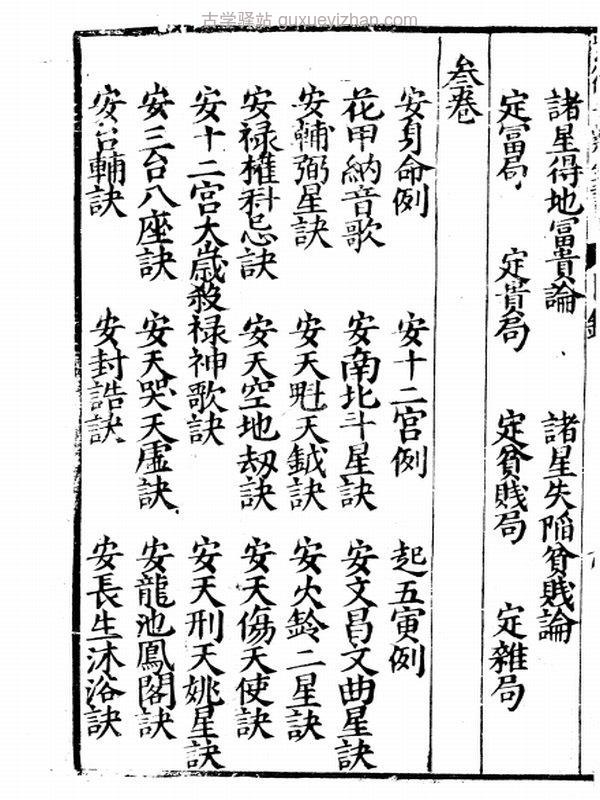 古学驿站 guxueyizhan.com
諸星得地富貴論 諸星失陷貧賎論
定富局 定貴局 定貧賎局 定雜局
叁卷
安身命例 安十二宫例 起五寅例
花甲納音歌 安南北斗星訣 安文昌文曲星訣
安輔弼星訣 安天魁天鉞訣 安火鈴二星訣
安禄權科忌訣 安天空地刼訣 安天傷天使訣
安十二宫大歲殺禄神歌訣 安天刑天姚星訣
安三台八座訣 安天哭天虚訣 安龍池鳳閣訣
安台輔訣 安封誥訣 安長生沐浴訣